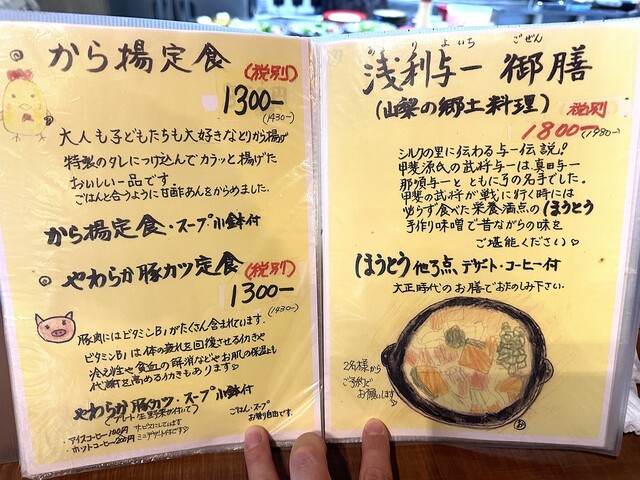 から揚定食
(税別)
1300-
(1430-)
大人も子どもたちも大好きなとりから揚げ
特製のタレにつけ込んでカラッと揚げた
おいしい一品です。
ごはんと合うように甘酢あんをからめました。
から揚定食・スープ小鉢付
やわらか豚カツ定食
(税別)
1300-
(1430-)
豚肉にはビタミンB₁がたくさん含まれています。
ビタミンB₁は体の疲れを回復させる働きや
冷え性や貧血の解消などやお肌の保温よし
代謝を高める働きもあります♡
やわらか豚カツ・スープ小鉢付
(プレート生野菜が付いて)
・アイスコーヒー100円 サービスにしています
・ホットコーヒー200円 ミニデザート付です♡
ごはん・スープ
お替り自由です。
あさりよいち ごぜん
浅利与一 御膳
(山梨の郷土料理)
税別
1800-
(1980-)
シルクの里に伝わる与一伝説!
甲斐源氏の武将与一は真田与一
那須与一とともに弓の名手でした。
甲斐の武将が戦に行く時には
必らず食べた栄養満点のほうとう
手作り味噌で昔ながらの味を
ご堪能ください♡
ほうとう他3点、デザート・コーヒー付
大正時代のお膳でおたのしみ下さい。
2名様から
ご予約で
お願いします